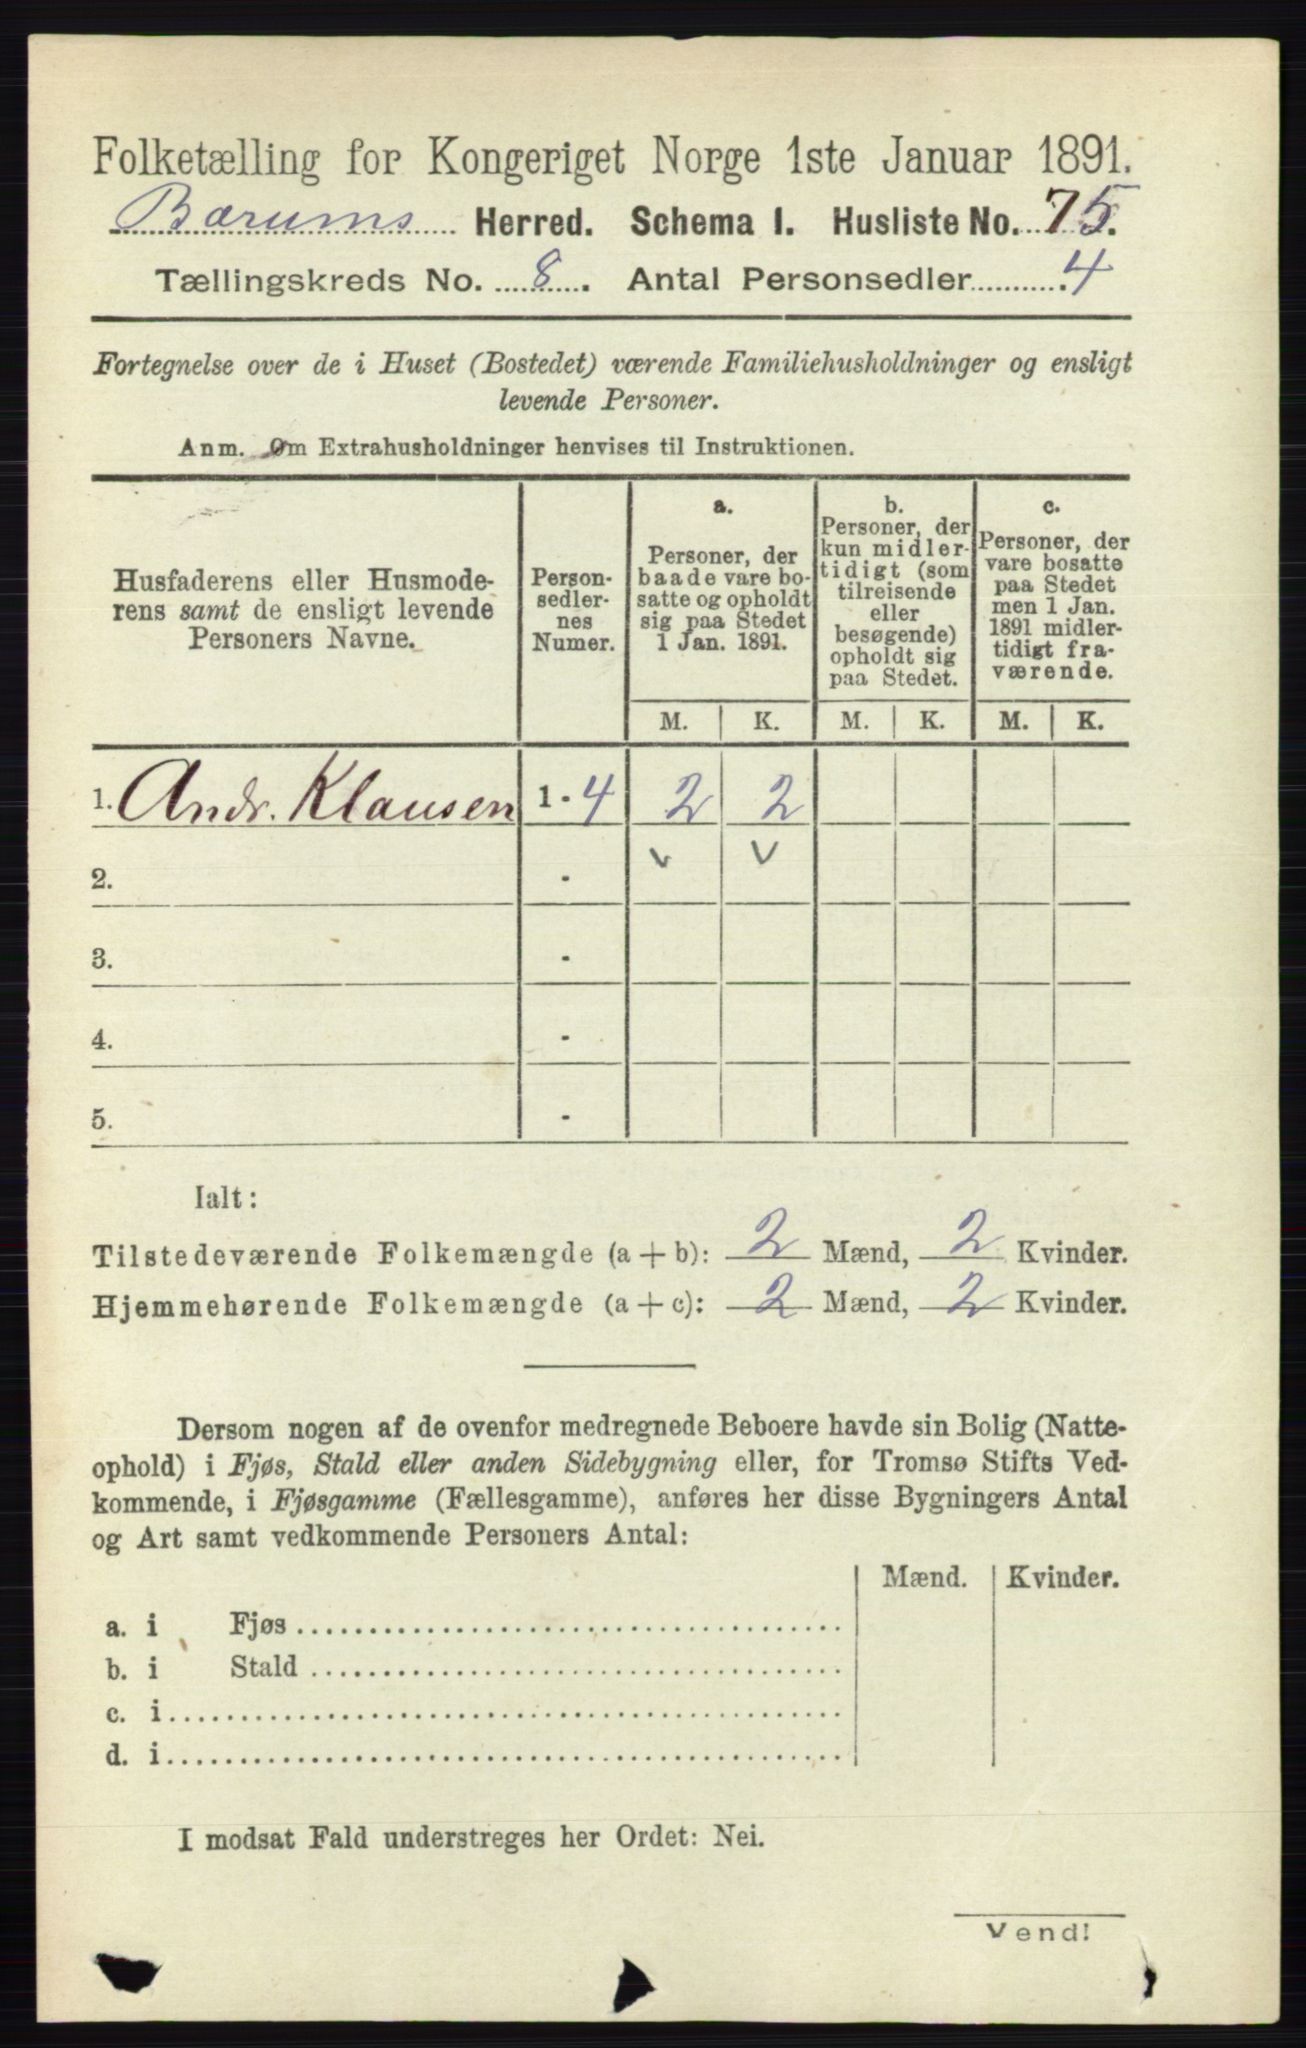 Folketælling for Kongeriget Norge 1ste Januar 1891.
Bærums Herred. Schema 1. Husliste No. 75.
Tællingskreds No. 8. Antal Personsedler 4
Fortegnelse over de i Huset (Bostedet) værende Familiehusholdninger og ensligt
levende Personer.
Anm. Om Extrahusholdninger henvises til Instruktionen.
Husfaderens eller Husmode-
rens samt de ensligt levende
Personers Navne.
Person-
sedler-
nes
Numer.
a.
Personer, der
baade vare bo-
satte og opholdt
sig paa Stedet
1 Jan. 1891.
b.
Personer, der
kun midler-
tidigt (som
tilreisende
eller
besøgende)
opholdt sig
paa Stedet.
c.
Personer, der
vare bosatte
paa Stedet
men 1 Jan.
1891 midler-
tidigt fra-
værende.
M. K. M. K. M. K.
1. Andr. Klausen 1 - 4 2 2
2. - v v
3. -
4. -
5. -
Ialt:
Tilstedeværende Folkemængde (a + b): 2 Mænd, 2 Kvinder.
Hjemmehørende Folkemængde (a + c): 2 Mænd, 2 Kvinder.
Dersom nogen af de ovenfor medregnede Beboere havde sin Bolig (Natte-
ophold) i Fjøs, Stald eller anden Sidebygning eller, for Tromsø Stifts Ved-
kommende, i Fjøsgamme (Fællesgamme), anføres her disse Bygningers Antal
og Art samt vedkommende Personers Antal:
Mænd. Kvinder.
a. i Fjøs
b. i Stald
c. i
d. i
I modsat Fald understreges her Ordet: Nei.
Vend!